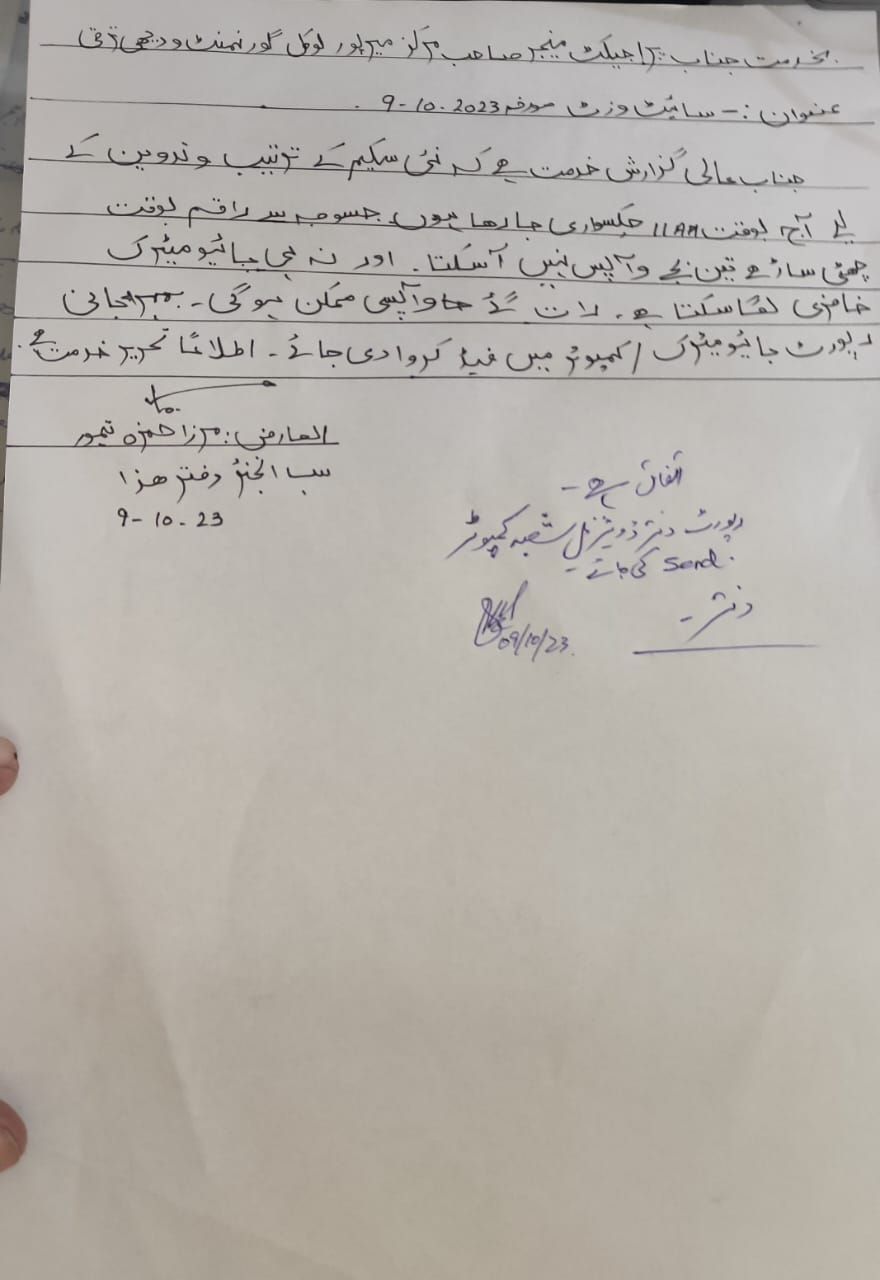 بخدمت جناب پراجیکٹ منیجر صاحب مرکز میرپور لوکل گورنمنٹ و دیہی ترقی
عنوان :- سائیٹ وزٹ مورخہ 9-10-2023 .
جناب عالی گزارش خدمت ہے کہ نئی سکیم کے ترتیب و تدوین کے
لیے آج بوقت 11 AM چکسواری جا رہا ہوں جسوجہ سے راقم بوقت
چھٹی ساڑھے تین بجے واپس نہیں آسکتا۔ اور نہ ہی بائیو میٹرک
حاضری لگا سکتا ہے۔ رات گئے واپسی ممکن ہو گی۔ مہربانی
رپورٹ بائیو میٹرک / کمپیوٹر میں فیڈ کروا دی جائے۔ اطلاعاً تحریر خدمت ہے۔
العارض: مرزا حمزہ تیمور
سب انجنئر دفتر ھذا
9-10-23
اتفاق ہے۔
رپورٹ دفتر ڈویژنل شعبہ کمپیوٹر
Send کی جائے۔
دفتر۔
09/10/23.